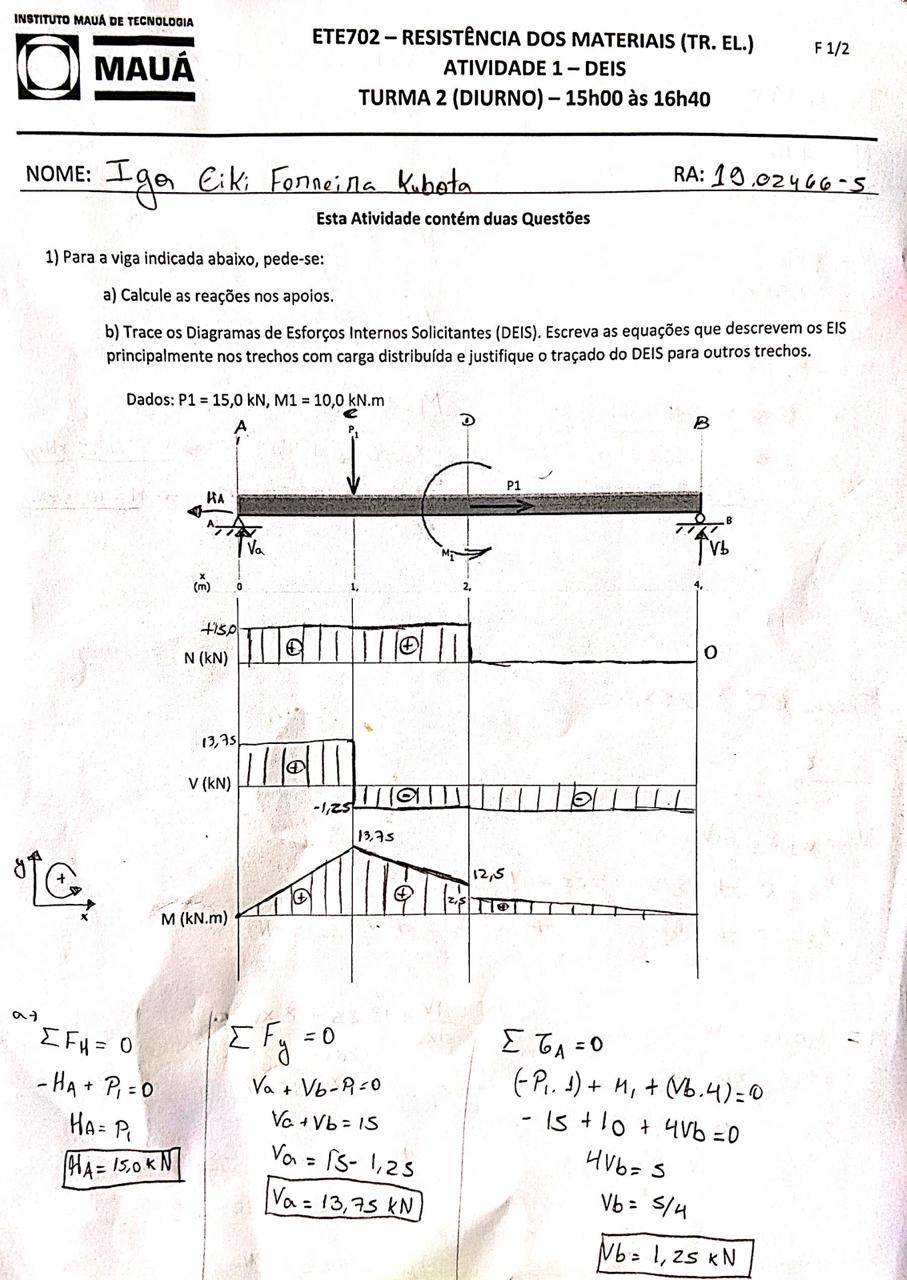 INSTITUTO MAUÁ DE TECNOLOGIA
MAUÁ
ETE702 – RESISTÊNCIA DOS MATERIAIS (TR. EL.)
F 1/2
ATIVIDADE 1 – DEIS
TURMA 2 (DIURNO) – 15h00 às 16h40
NOME: Igor Eiki Ferreira Kubota
RA: 19.02466-5
Esta Atividade contém duas Questões
1) Para a viga indicada abaixo, pede-se:
a) Calcule as reações nos apoios.
b) Trace os Diagramas de Esforços Internos Solicitantes (DEIS). Escreva as equações que descrevem os EIS
principalmente nos trechos com carga distribuída e justifique o traçado do DEIS para outros trechos.
Dados: P1 = 15,0 kN, M1 = 10,0 kN.m
A C D B
P1
HA P1
A B
Va M1 Vb
x
(m) 0 1, 2, 4,
+15,0
N (kN) + + 0
13,75
V (kN) + - -
-1,25
13,75
12,5
2,5
M (kN.m) + + +
y + x
a→
ΣFH = 0
-HA + P1 = 0
HA = P1
HA = 15,0 kN
ΣFy = 0
Va + Vb - P1 = 0
Va + Vb = 15
Va = 15 - 1,25
Va = 13,75 kN
Σ τA = 0
(-P1 . 1) + M1 + (Vb.4) = 0
- 15 + 10 + 4Vb = 0
4Vb = 5
Vb = 5/4
Vb = 1,25 kN